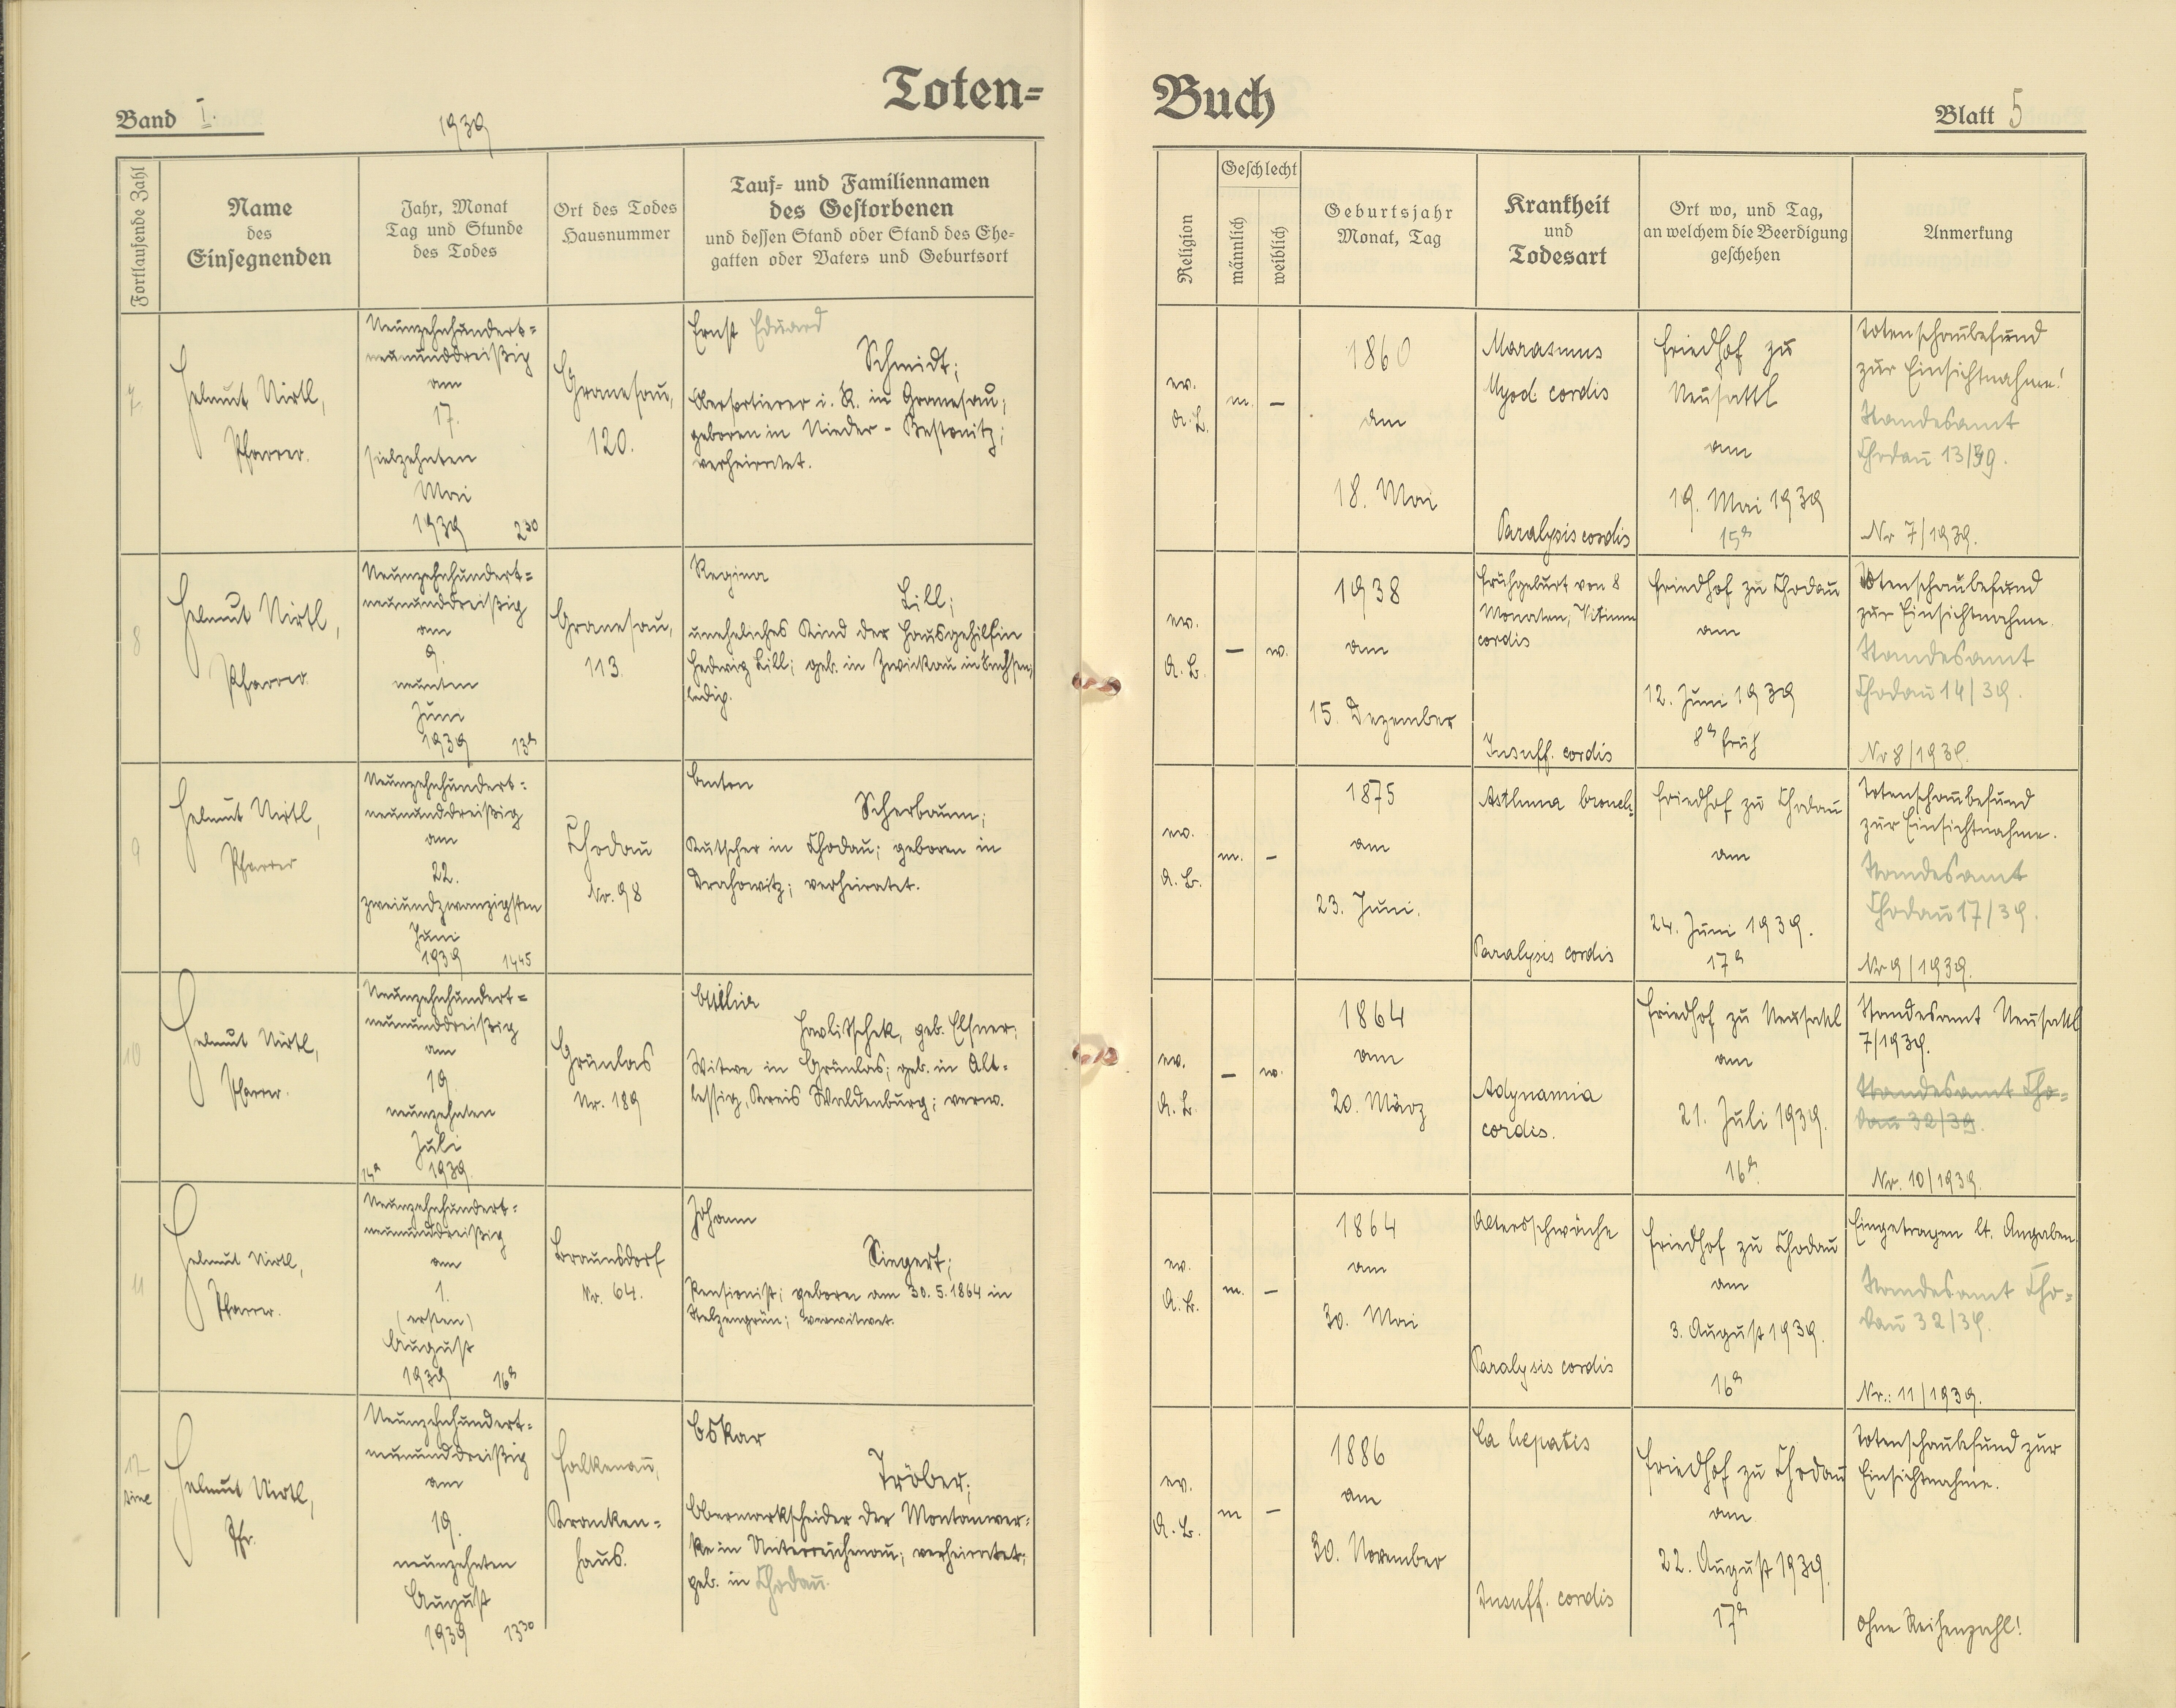 Toten=
Buch
Band I.
1939
Blatt 5
Fortlaufende Zahl
Name
des
Einsegnenden
Jahr, Monat
Tag und Stunde
des Todes
Ort des Todes
Hausnummer
Tauf= und Familiennamen
des Gestorbenen
und dessen Stand oder Stand des Ehe=
gatten oder Vaters und Geburtsort
Religion
Geschlecht
männlich
weiblich
Geburtsjahr
Monat, Tag
Krankheit
und
Todesart
Ort wo, und Tag,
an welchem die Beerdigung
geschehen
Anmerkung
7
Helmut Nirtl,
Pfarrer.
Neunzehnhundert=
neununddreißig
am
17.
siebzehnten
Mai
1939 2 30
Granesau,
120.
Ernst Eduard
Schmidt;
Obersortierer i. R. in Granesau;
geboren in Nieder-
verheiratet.
ev.
A. B.
m.
–
1860
am
18. Mai
Marasmus
Myod. cordis
Paralysis cordis
Friedhof zu
Neusattl
am
19. Mai 1939
15 h
Totenschaubefund
zur Einsichtnahme!
Standesamt
Chodau 13/39.
Nr 7/1939.
8
Helmut Nirtl,
Pfarrer
Neunzehnhundert=
neununddreißig
am
9.
neunten
Juni
1939 13 h
Granesau,
113.
Regina
Lill;
uneheliches Kind der Hausgehilfin
Hedwig Lill; geb. in Zwickau in Sachsen;
ledig.
ev.
A. B.
–
w.
1938
am
15. Dezember
Frühgeburt von 8
Monaten, Vitium
cordis
Insuff. cordis
Friedhof zu Chodau
am
12. Juni 1939
8 h früh
Totenschaubefund
zur Einsichtnahme.
Standesamt
Chodau 14/39.
Nr 8/1939.
9
Helmut Nirtl,
Pfarrer
Neunzehnhundert=
neununddreißig
am
22.
zweiundzwanzigsten
Juni
1939 14 45
Chodau
Nr. 98
Anton
Scherbaum;
Kutscher in Chodau; geboren in
Drahowitz; verheiratet.
ev.
A. B.
m.
–
1875
am
23. Juni.
Asthma bronch.
Paralysis cordis
Friedhof zu Chodau
am
24. Juni 1939.
17 h
Totenschaubefund
zur Einsichtnahme.
Standesamt
Chodau 17/39.
Nr 9/1939.
10
Helmut Nirtl,
Pfarrer.
Neunzehnhundert=
neununddreißig
am
19.
neunzehnten
Juli
14 h 1939.
Grünlas
Nr. 189
Ottilia
Hawlitschek, geb. Elsner;
Witwe in Grünlas; geb. in Alt=
lässig, Kreis Waldenburg; verw.
ev.
A. B.
–
w.
1864
am
20. März
Adynamia
cordis.
Friedhof zu Neusattl
am
21. Juli 1939.
16 h
Standesamt Neusattl
7/1939.
Standesamt Cho=
dau 32/39.
Nr. 10/1939.
11
Helmut Nirtl,
Pfarrer.
Neunzehnhundert=
neununddreißig
am
1.
(ersten)
August
1939 16 h
Braunsdorf
Nr. 64.
Johann
Siegert;
Pensionist; geboren am 30. 5. 1864 in
Stelzengrün; verwitwet.
ev.
A. B.
m.
–
1864
am
30. Mai
Altersschwäche
Paralysis cordis
Friedhof zu Chodau
am
3. August 1939.
16 h
Eingetragen lt. Angaben.
Standesamt Cho=
dau 32/39.
Nr.: 11/1939.
12
sine
Helmut Nirtl,
Pfr.
Neunzehnhundert=
neununddreißig
am
19.
neunzehnten
August
1939 13 30
Falkenau,
Kranken=
haus.
Oskar
Tröber;
Obermarkscheider der Montanwer=
ke in Unterreichenau; verheiratet;
geb. in Chodau.
ev.
A. B.
m
–
1886
am
30. November
Ca hepatis
Insuff. cordis
Friedhof zu Chodau
am
22. August 1939.
17 h
Totenschaubefund zur
Einsichtnahme.
Ohne Reihenzahl!